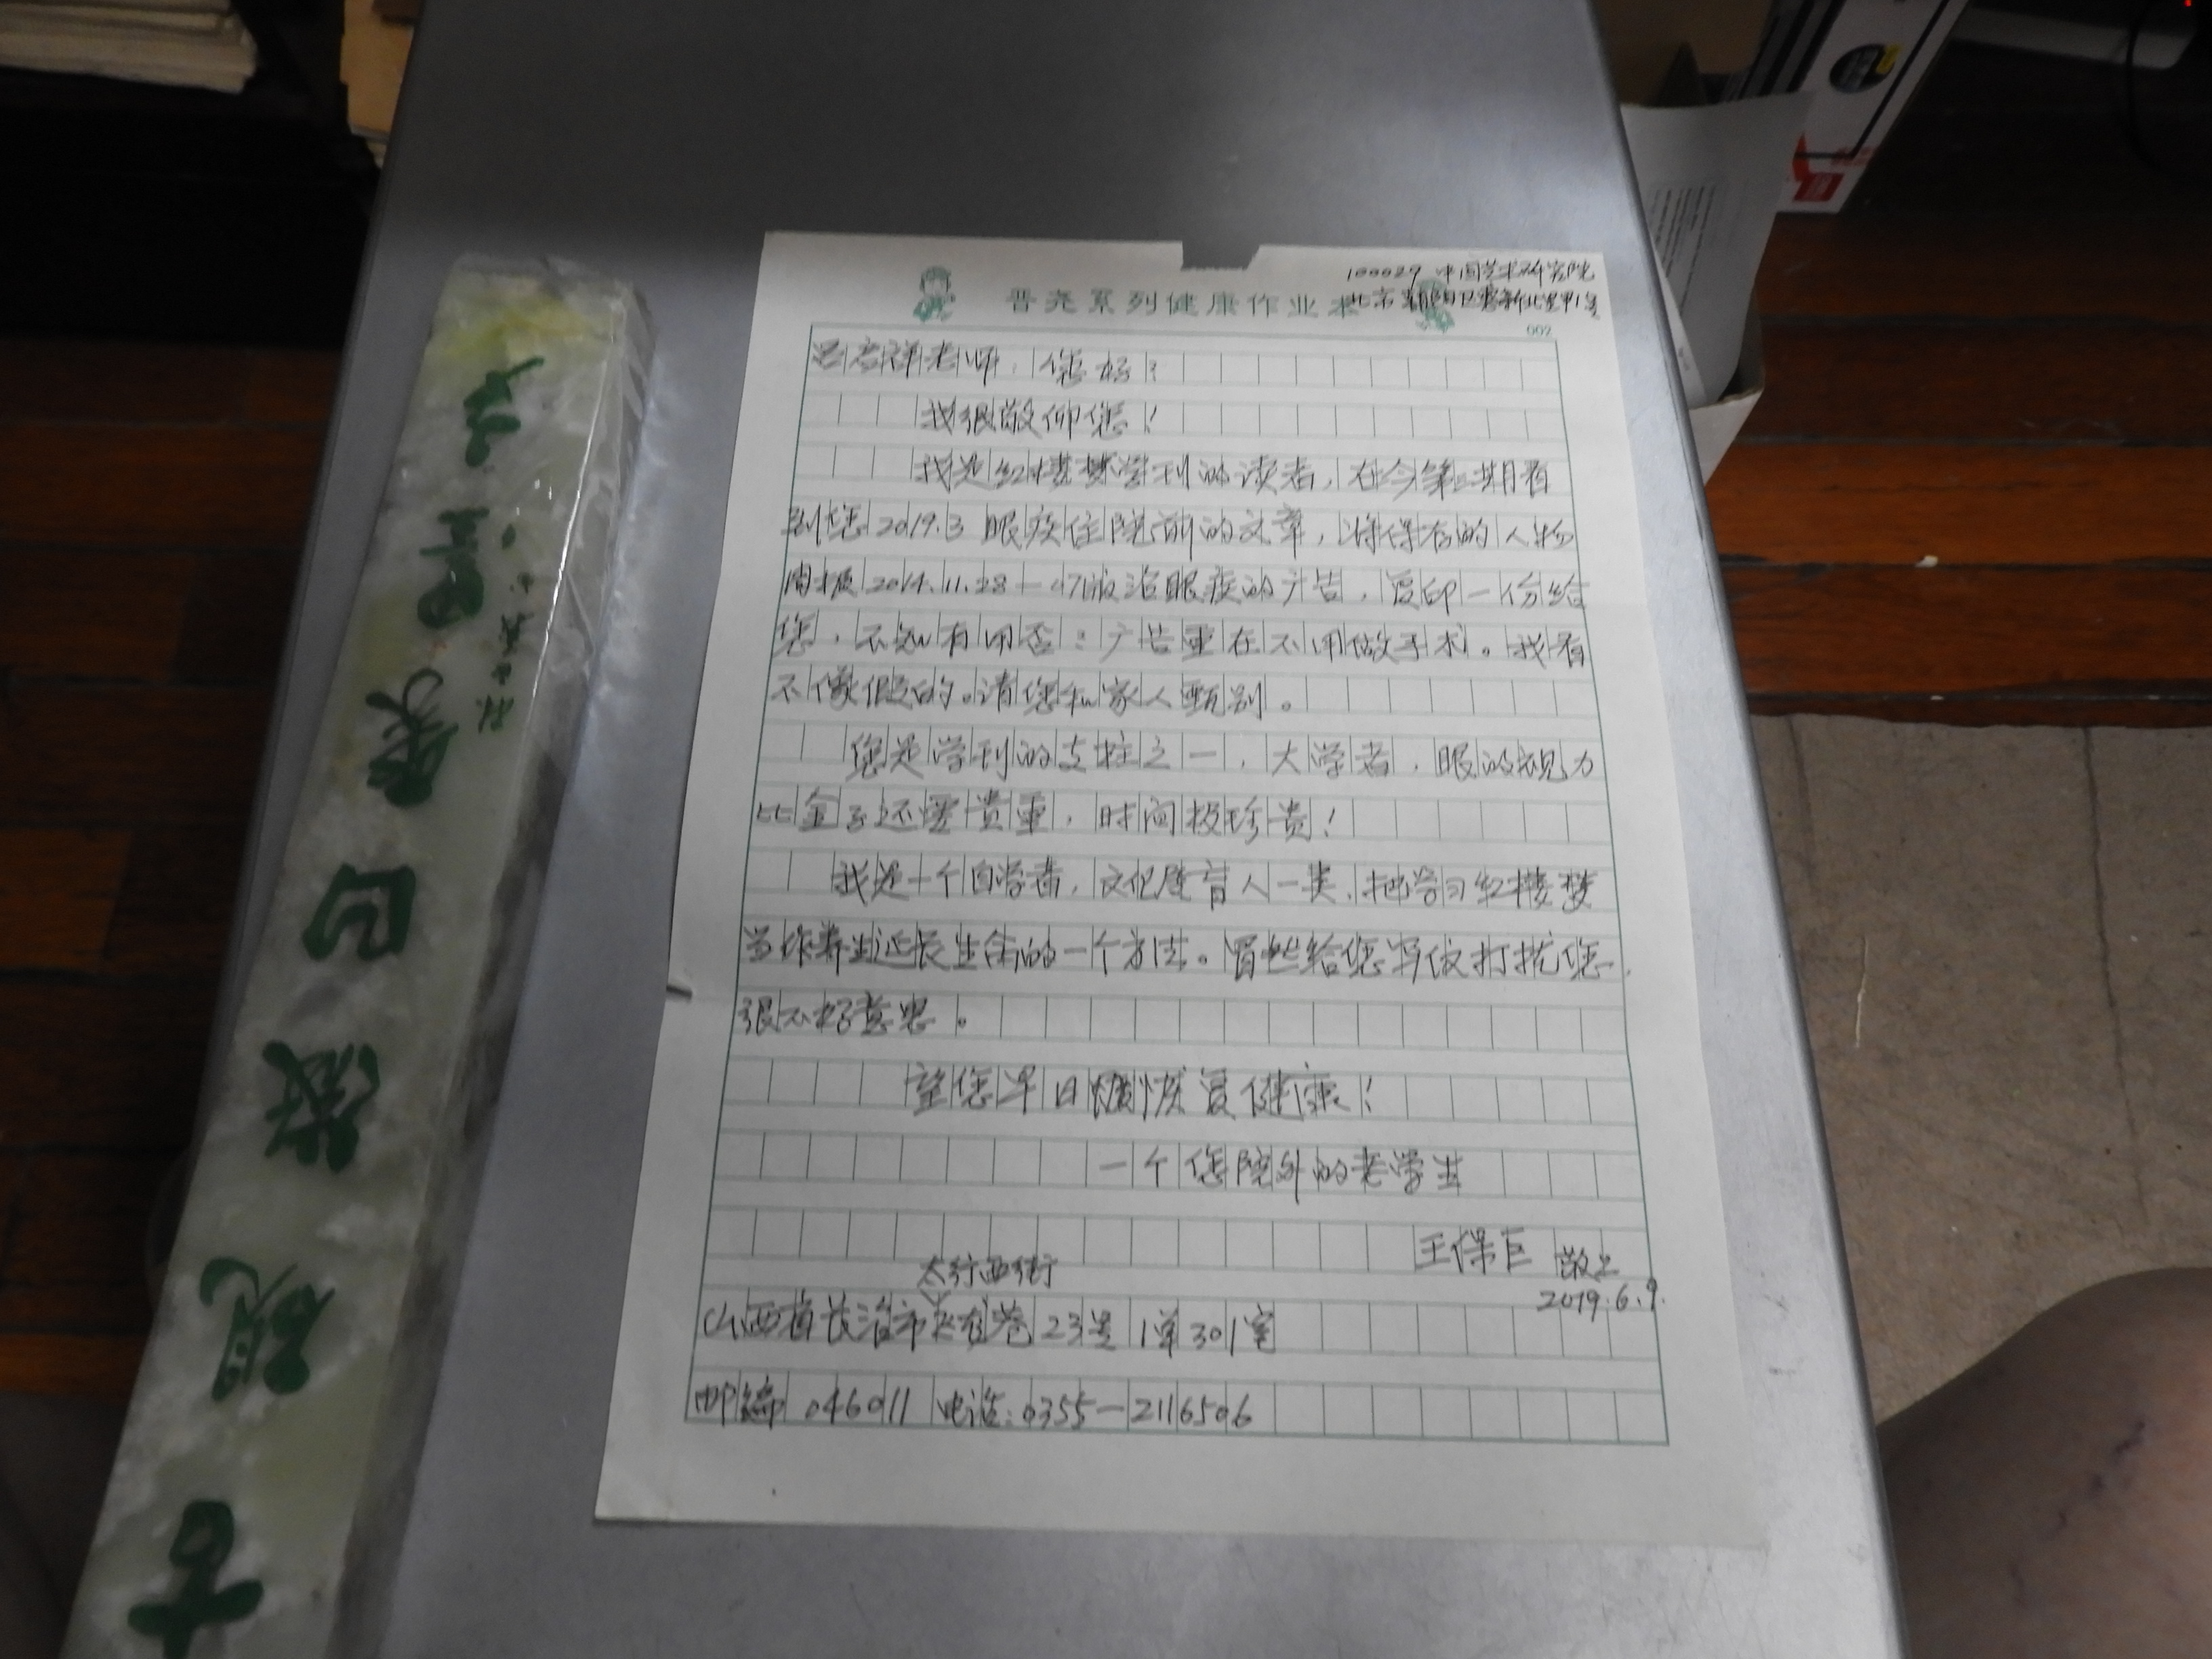 100029 中国艺术研究院
北京朝阳区惠新北里甲1号
晋尧系列健康作业本
002
吕启祥老师:您好!
我很敬仰您!
我是红楼梦学刊的读者,在今第三期看
到您2019.3眼疾住院前的文章,将保存的人物
周报2014.11.28十47版治眼疾的广告,复印一份给
您,不知有用否?广告重在不用做手术。我看
不像假的。请您和家人甄别。
您是学刊的支柱之一,大学者,眼的视力
比金子还要贵重,时间极珍贵!
我是一个自学者,文化属盲人一类,把学习红楼梦
当作养生延长生命的一个方法。冒然给您写信打扰您,
很不好意思。
望您早日恢复健康!
一个您院外的老学生
王保巨 敬上
2019.6.9.
太行西街
山西省长治市 巷23号1单301室
邮编 046011 电话:0355-2116506